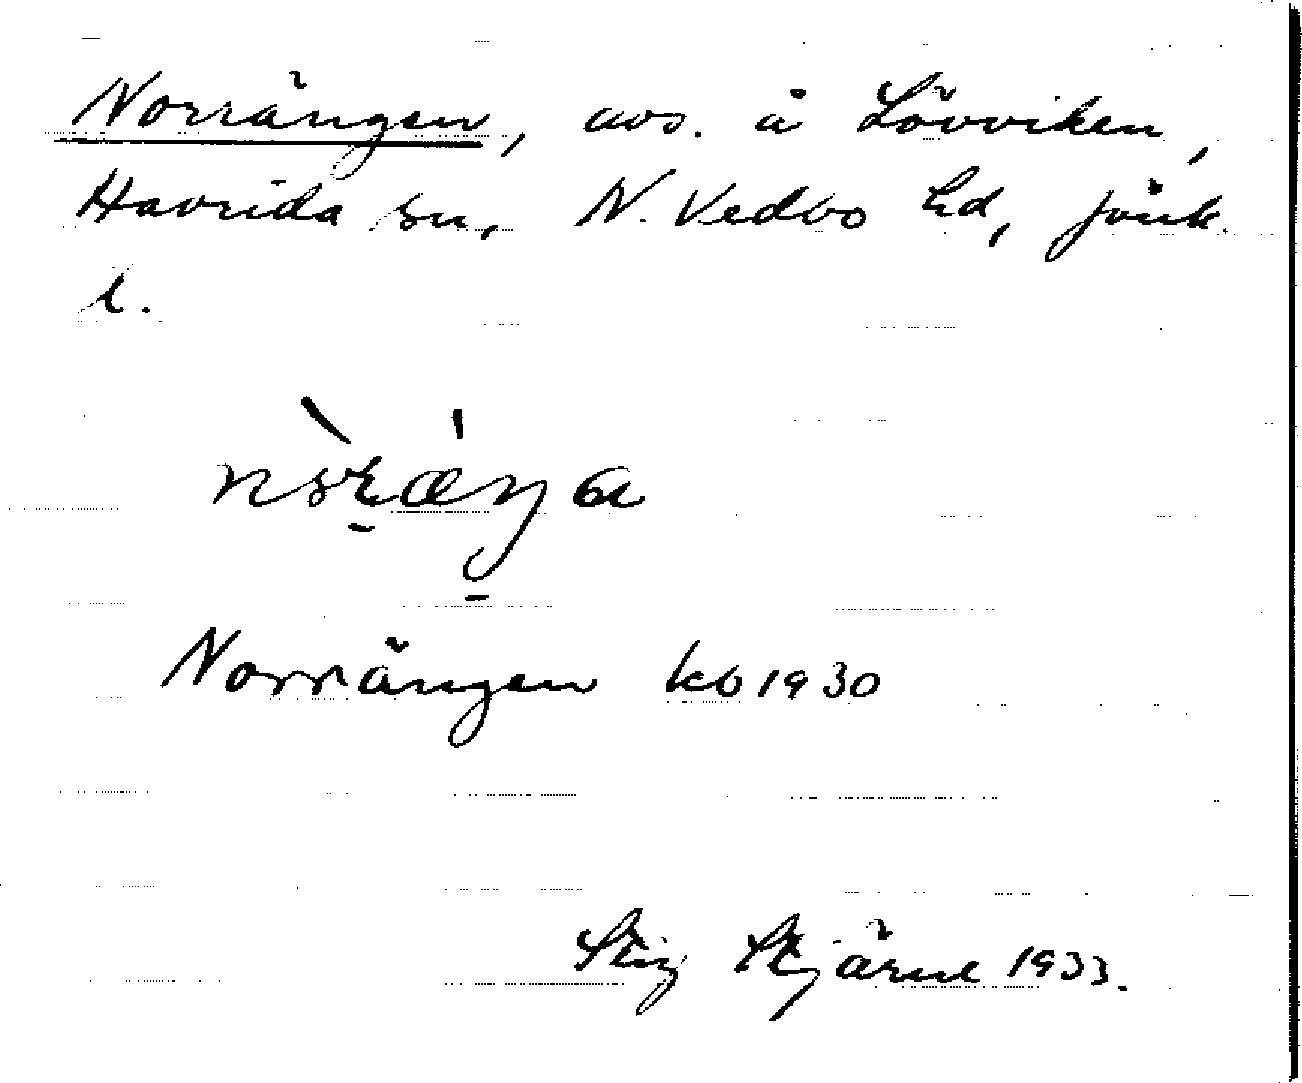 Norrängen, avs. å Lövviken,
Haurida sn, N. Vedbo hd, Jönk.
l.
Norrängen kb 1930
Stig Stjärne 1933.